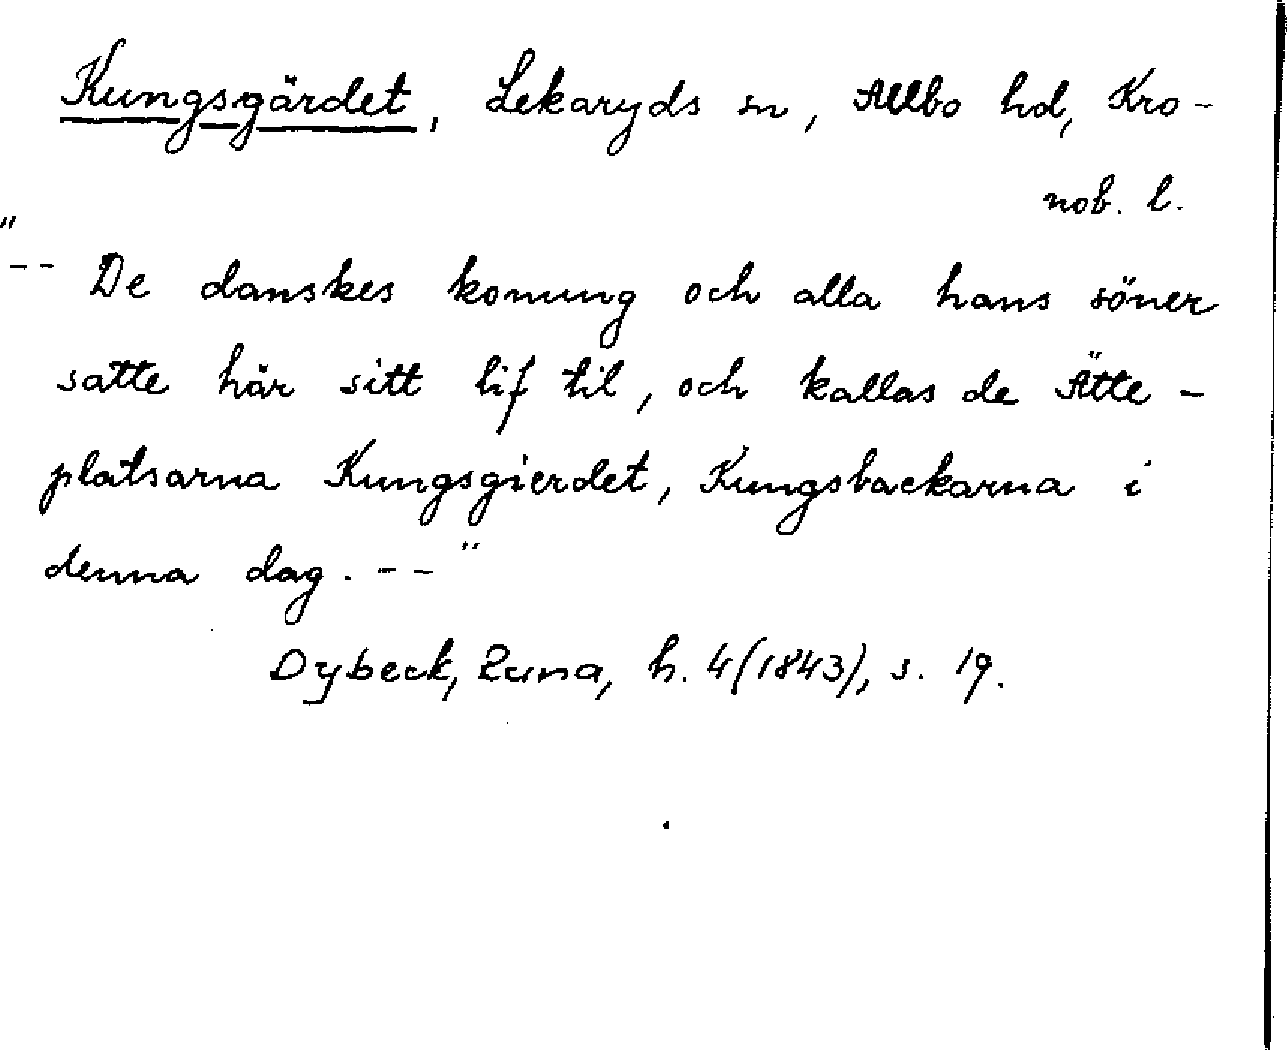 Kungsgärdet, Lekaryds sn, Allbo hd, Kro-
nob. l.
"-- De danskes konung och alla hans söner
satte här sitt lif til, och kallas de Ätte-
platsarna Kungsgierdet, Kungsbackarna i
denna dag. --"
Dybeck, Runa, h. 4(1843), s. 19.